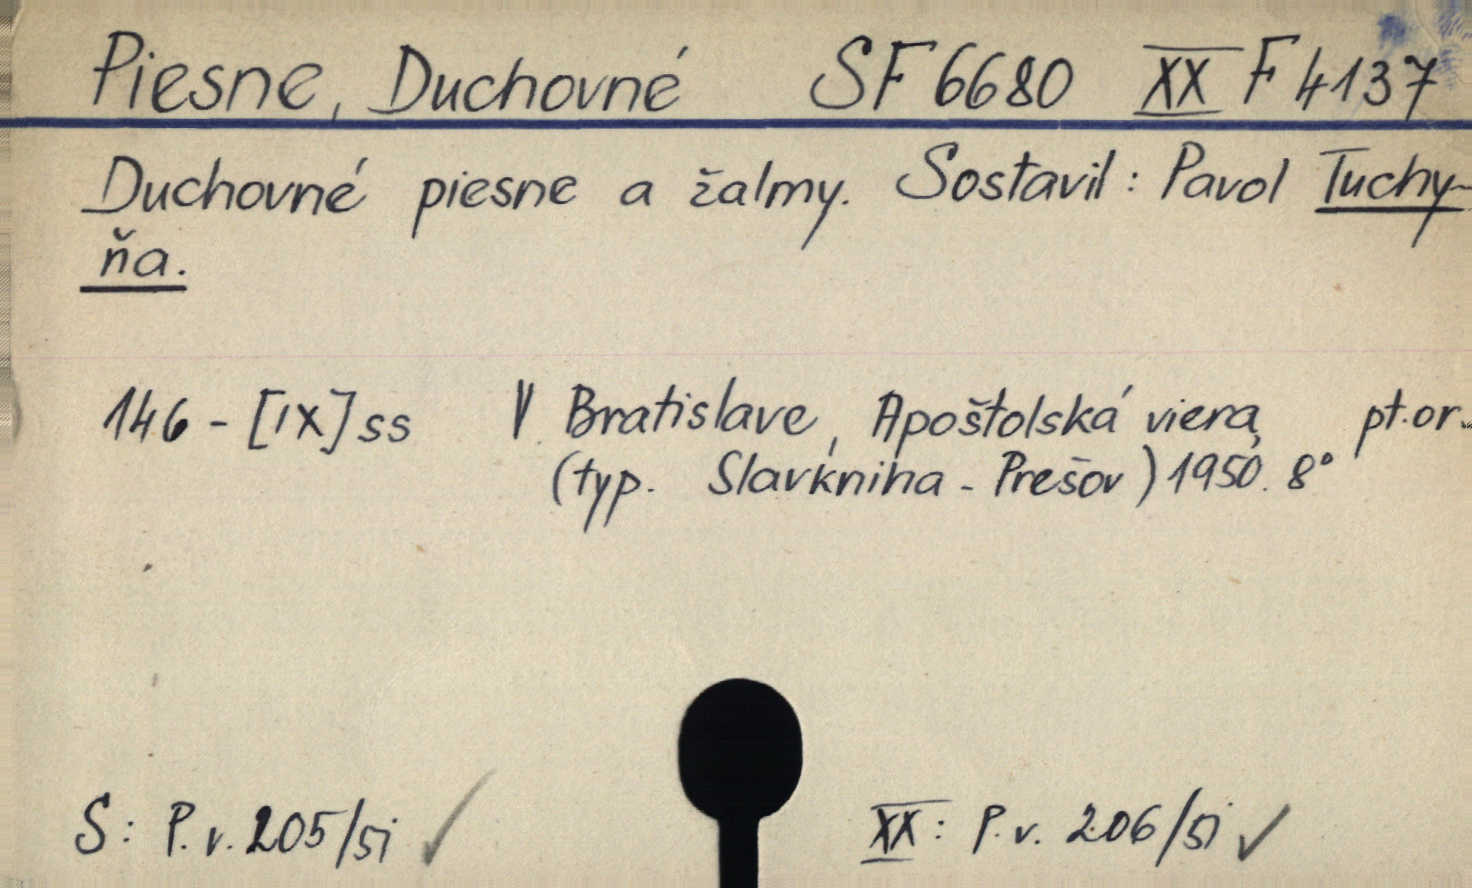 Piesne, Duchovné SF 6680 XX F 4137
Duchovné piesne a žalmy. Sostavil: Pavol Tuchy-
ňa.
146 - [IX] ss V Bratislave, Apoštolská viera, pt.or.
(typ. Slavkniha - Prešov) 1950. 8°
S: P. v. 205/51 ✓ XX: P. v. 206/51 ✓